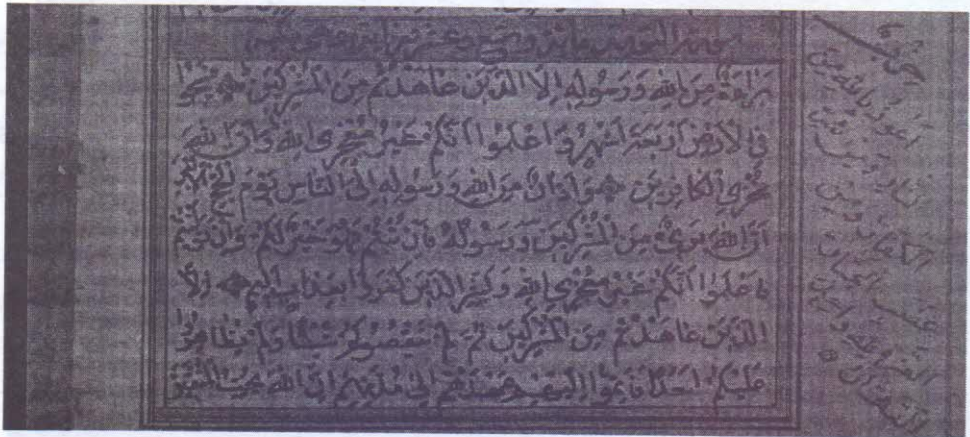 براءة من الله ورسوله إلا الذين عاهدتم من المشركين فسيحوا
في الأرض أربعة أشهر واعلموا أنكم غير معجزي الله وأن الله
مخزي الكافرين وأذان من الله ورسوله إلى الناس يوم الحج الأكبر
أن الله بريء من المشركين ورسوله فإن تبتم فهو خير لكم وإن توليتم
فاعلموا أنكم غير معجزي الله وبشر الذين كفروا بعذاب أليم إلا
الذين عاهدتم من المشركين ثم لم ينقصوكم شيئا ولم يظاهروا
عليكم أحدا فأتموا إليهم عهدهم إلى مدتهم إن الله يحب المتقين
أعوذ بالله من
النار
ومن
الكفار
ومن
غضب الجبار
العزة لله